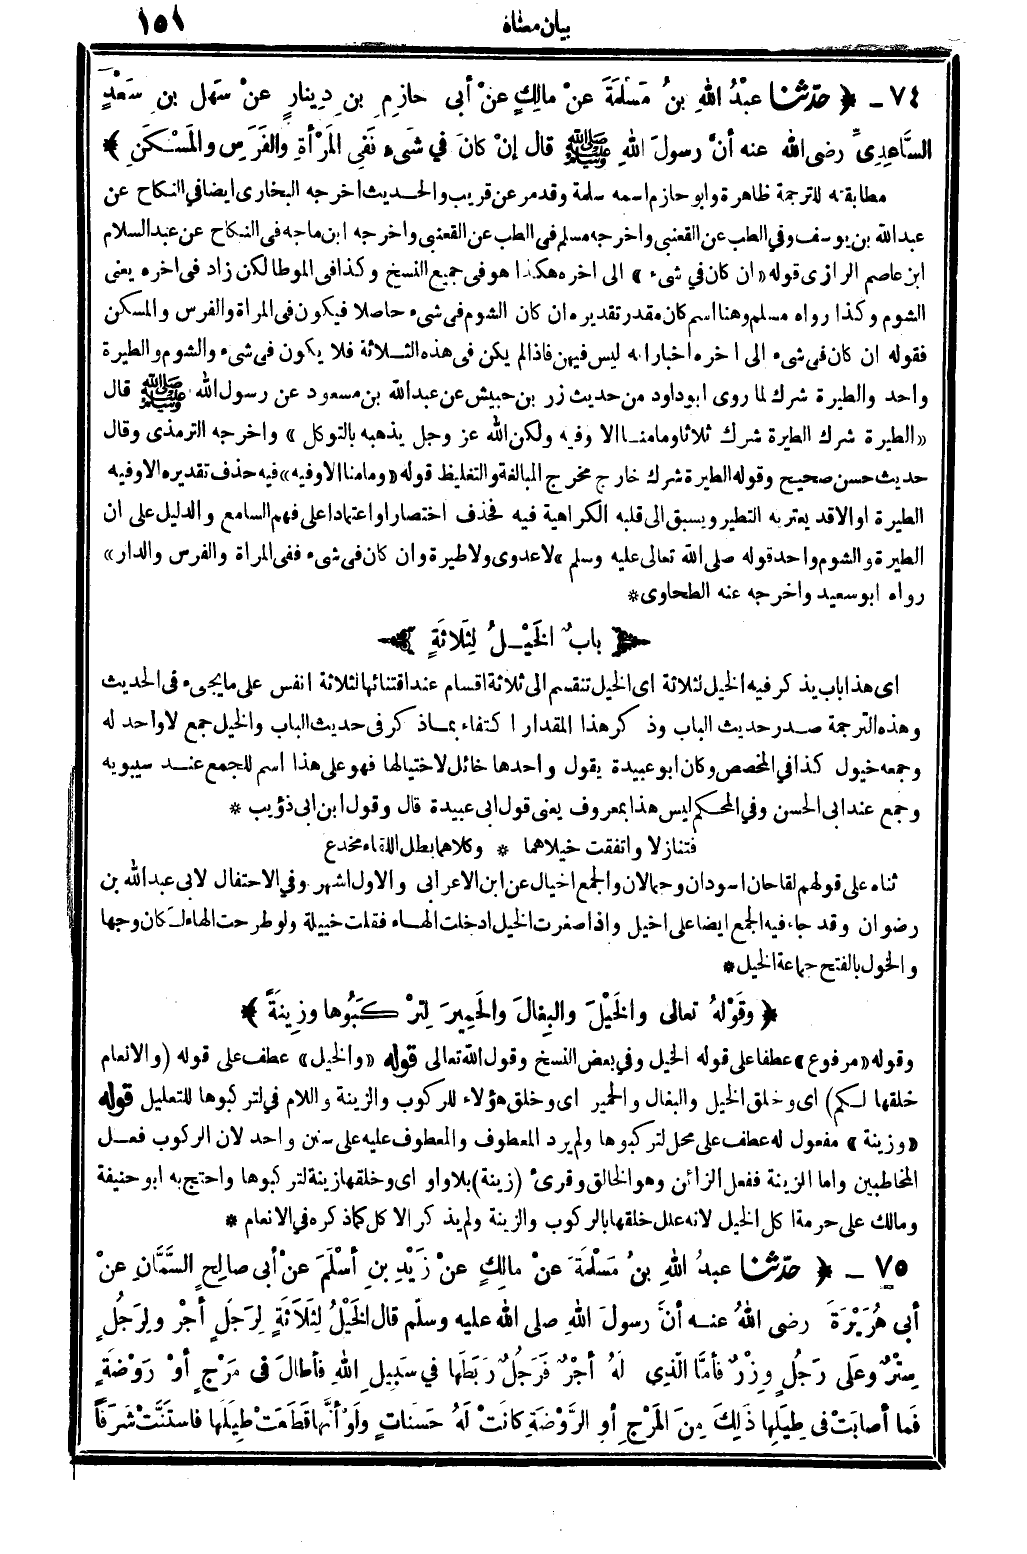 بيان معناه ١٥١
٧٤ ـ ﴿ حدّثنا عبْدُ اللهِ بنُ مَسْلَمَةَ عنْ مالِكٍ عنْ أبى حازِمِ بنِ دِينارٍ عنْ سَهْلِ بنِ سَعْدٍ
السَّاعِدِىِّ رضى الله عنه أنَّ رسولَ اللهِ ﷺ قال إنْ كانَ في شَىْء نَفِي المَرْأةِ والفَرَسِ والمَسْكَنِ ﴾
مطابقته للترجمة ظاهرة وابو حازم اسمه سلمة وقدمر عن قريب والحديث اخرجه البخارى ايضا في النكاح عن
عبدالله بن يوسف وفي الطب عن القعنبي واخرجه مسلم فى الطب عن القعنبي واخرجه ابن ماجه فى النكاح عن عبد السلام
ابن عاصم الرازى قوله «ان كان في شىء » الى اخره هكذا هو فى جميع النسخ وكذا فى الموطا لكن زاد فى اخره يعنى
الشوم وكذا رواه مسلم وهنا اسم كان مقدر تقديره ان كان الشوم في شىء حاصلا فيكون فى المراة والفرس والمسكن
فقوله ان كان فى شىء الى اخره اخبار انه ليس فيهن فاذا لم يكن فى هذه الثلاثة فلا يكون فى شىء والشوم والطيرة
واحد والطيرة شرك لما روى ابو داود من حديث زر بن حبيش عن عبد الله بن مسعود عن رسول الله ﷺ قال
«الطيرة شرك الطيرة شرك ثلاثا ومامنا الا وفيه ولكن الله عز وجل يذهبه بالتوكل » واخرجه الترمذى وقال
حديث حسن صحيح وقوله الطيرة شرك خارج مخرج المبالغة والتغليظ قوله «ومامنا الاوفيه» فيه حذف تقديره الاوفيه
الطيرة او الاقد يعتر به التطير ويسبق الى قلبه الكراهية فيه فحذف اختصارا واعتمادا على فهم السامع والدليل على ان
الطيرة والشوم واحد قوله صلى الله تعالى عليه وسلم »لاعدوى ولا طيرة وان كان فى شىء ففى المراة والفرس والدار»
رواه ابو سعيد واخرجه عنه الطحاوى*
﴿ بابٌ الخَيْـلُ لِثَلَاثَةٍ ﴾
اى هذا باب يذكر فيه الخيل لثلاثة اى الخيل تنقسم الى ثلاثة اقسام عند اقتنائها لثلاثة انفس على ما يجىء فى الحديث
وهذه الترجمة صدر حديث الباب وذكر هذا المقدار اكتفاء بما ذكر فى حديث الباب والخيل جمع لا واحد له
وجمعه خيول كذا في المخصص وكان ابو عبيدة يقول واحدها خائل لاختيالها فهو على هذا اسم للجمع عند سيبويه
وجمع عند ابى الحسن وفي المحكم ليس هذا بمعروف يعنى قول ابى عبيدة قال وقول ابن ابى ذؤيب *
فتنازلا واتفقت خيلاهما * وكلاهما بطل اللقاء مخدع
ثناه على قولهم لقاحان اسودان وجمالان والجمع اخيال عن ابن الاعرابى والاول اشهر وفي الاحتفال لابى عبد الله بن
رضوان وقد جاء فيه الجمع ايضا على اخيل واذا صغرت الخيل ادخلت الهاء فقلت خييلة ولو طرحت الهاء لكان وجها
والخول بالفتح جماعة الخيل*
﴿ وقَوْلهُ تعالى والخَيْلَ والبِغالَ والحَمِيرَ لِتَرْكَبُوها وزِينَةً ﴾
وقوله «مرفوع» عطفا على قوله الخيل وفي بعض النسخ وقول الله تعالى قوله «والخيل» عطف على قوله (والانعام
خلقها لكم) اى وخلق الخيل والبغال والحمير اى وخلق هؤلاء للركوب والزينة واللام في لتركبوها للتعليل قوله
«وزينة » مفعول له عطف على محل لتركبوها ولم يرد المعطوف والمعطوف عليه على سنن واحد لان الركوب فعل
المخاطبين واما الزينة ففعل الزائن وهو الخالق وقرىء (زينة) بلاواو اى وخلقها زينة لتركبوها واحتج به ابو حنيفة
ومالك على حرمة اكل الخيل لانه علل خلقها بالركوب والزينة ولم يذكر الاكل كما ذكره في الانعام *
٧٥ ـ ﴿ حدّثنا عبدُ اللهِ بنُ مَسْلَمَةَ عنْ مالِكٍ عنْ زَيْدِ بنِ أسْلَمَ عنْ أبى صالِحٍ السَّمَّانِ عنْ
أبى هُرَيْرَةَ رضى اللهُ عنه أنَّ رسولَ اللهِ صلى الله عليه وسلّم قال الخَيْلُ لِثَلَاثَةٍ لِرَجُلٍ أجْرٌ ولِرَجُلٍ
سِتْرٌ وعلَى رَجُلٍ وِزْرٌ فأمَّا الَّذِى لَهُ أجْرٌ فَرَجُلٌ رَبَطَها في سَبيلِ اللهِ فأطالَ فى مَرْجٍ أوْ رَوْضَةٍ
فَما أصابَتْ فى طِيَلِها ذَلِكَ مِنَ المَرْجِ أوِ الرَّوْضَةِ كانَتْ لَهُ حَسَناتٍ ولَوْ أنَّها قَطَعَتْ طِيَلَها فاسْتَنَّتْ شَرَفاً